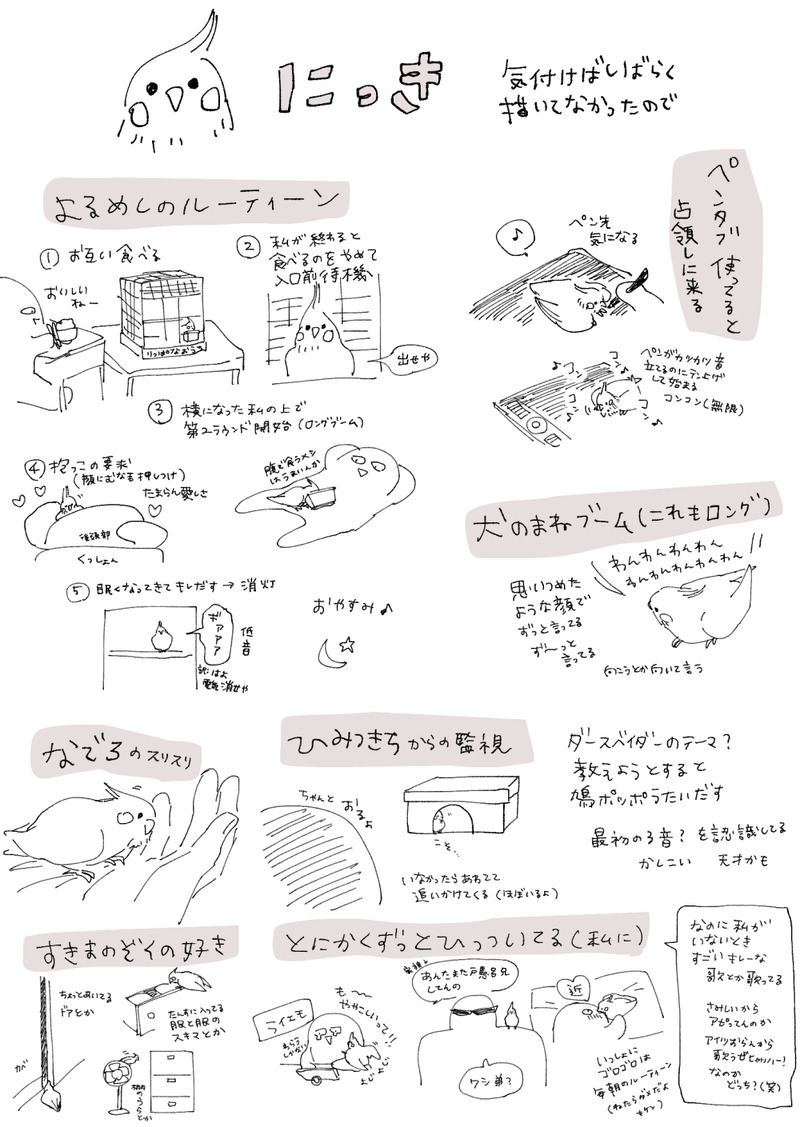 にっき
気付けばしばらく
描いてなかったので
よるめしのルーティーン
① お互い食べる
おいしい
ねー
りっぱなおうち
② 私が終わると
食べるのをやめて
入口前待機
出せや
③ 横になった私の上で
第2ラウンド開始(ロングブーム)
腹で食うメシ
はうまいんか
④ 抱っこの要求
(顔にむな毛押しつけ)
たまらん愛しさ
後頭部
くっしょん
⑤ 眠くなってきてキレだす→消灯
ギァァァ
低音
訳:はよ
電気消せや
おやすみ♪
ペンタブ使ってると
占領しに来る
♪
ペン先
気になる
ペンがカツカツ音
立てるのにテン上げ
して始まる
コンコン(無限)
コン
コン
コン
犬のまねブーム(これもロング)
わんわんわんわん
わんわんわんわんわん
思いつめた
ような顔で
ずっと言ってる
ず〜っと
言ってる
向こうとか向いて言う
なでろのスリスリ
ひみつきちからの監視
ちゃんと
おるよ
こそ…
いなかったらあわてて
追いかけてくる(ほぼいるよ)
ダースベイダーのテーマ?
教えようとすると
鳩ポッポうたいだす
最初の3音?を認識してる
かしこい 天才かも
すきまのぞくの好き
ちょっとあいてる
ドアとか
ガバ
たんすに入ってる
服と服の
スキマとか
棚のうらとか
とにかくずっとひっついてる(私に)
ライエも
も〜
やかこいって!!
よじよじ
あんたまた戸愚呂兄
してんの
ワシ弟?
近
いっしょに
ゴロゴロは
毎朝のルーティーン
(ねたらダメだよ
キケン)
なのに私が
いないとき
すごいキレーな
歌とか歌ってる
さみしいから
アピってんのか
アイツおらんから
歌うぜヒャッハー!
なのか
どっち?(笑)